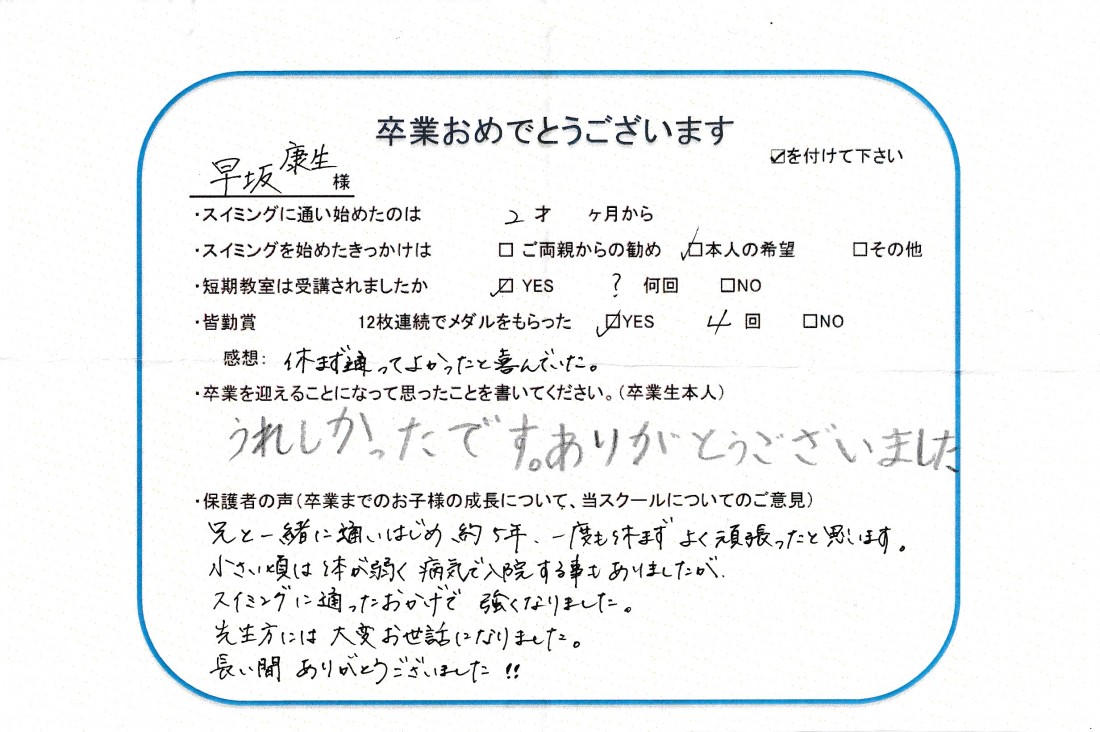 卒業おめでとうございます
☑を付けて下さい
早坂 康生 様
・スイミングに通い始めたのは 2 才 ヶ月から
・スイミングを始めたきっかけは □ ご両親からの勧め ☑本人の希望 □その他
・短期教室は受講されましたか ☑ YES ? 何回 □NO
・皆勤賞 12枚連続でメダルをもらった ☑YES 4 回 □NO
感想: 休まず通ってよかったと喜んでいた。
・卒業を迎えることになって思ったことを書いてください。(卒業生本人)
うれしかったです。ありがとうございました
・保護者の声(卒業までのお子様の成長について、当スクールについてのご意見)
兄と一緒に通いはじめ 約5年、一度も休まず よく頑張ったと思います。
小さい頃は 体が弱く 病気で入院する事も ありましたが、
スイミングに通ったおかげで 強くなりました。
先生方には 大変お世話になりました。
長い間 ありがとうございました!!